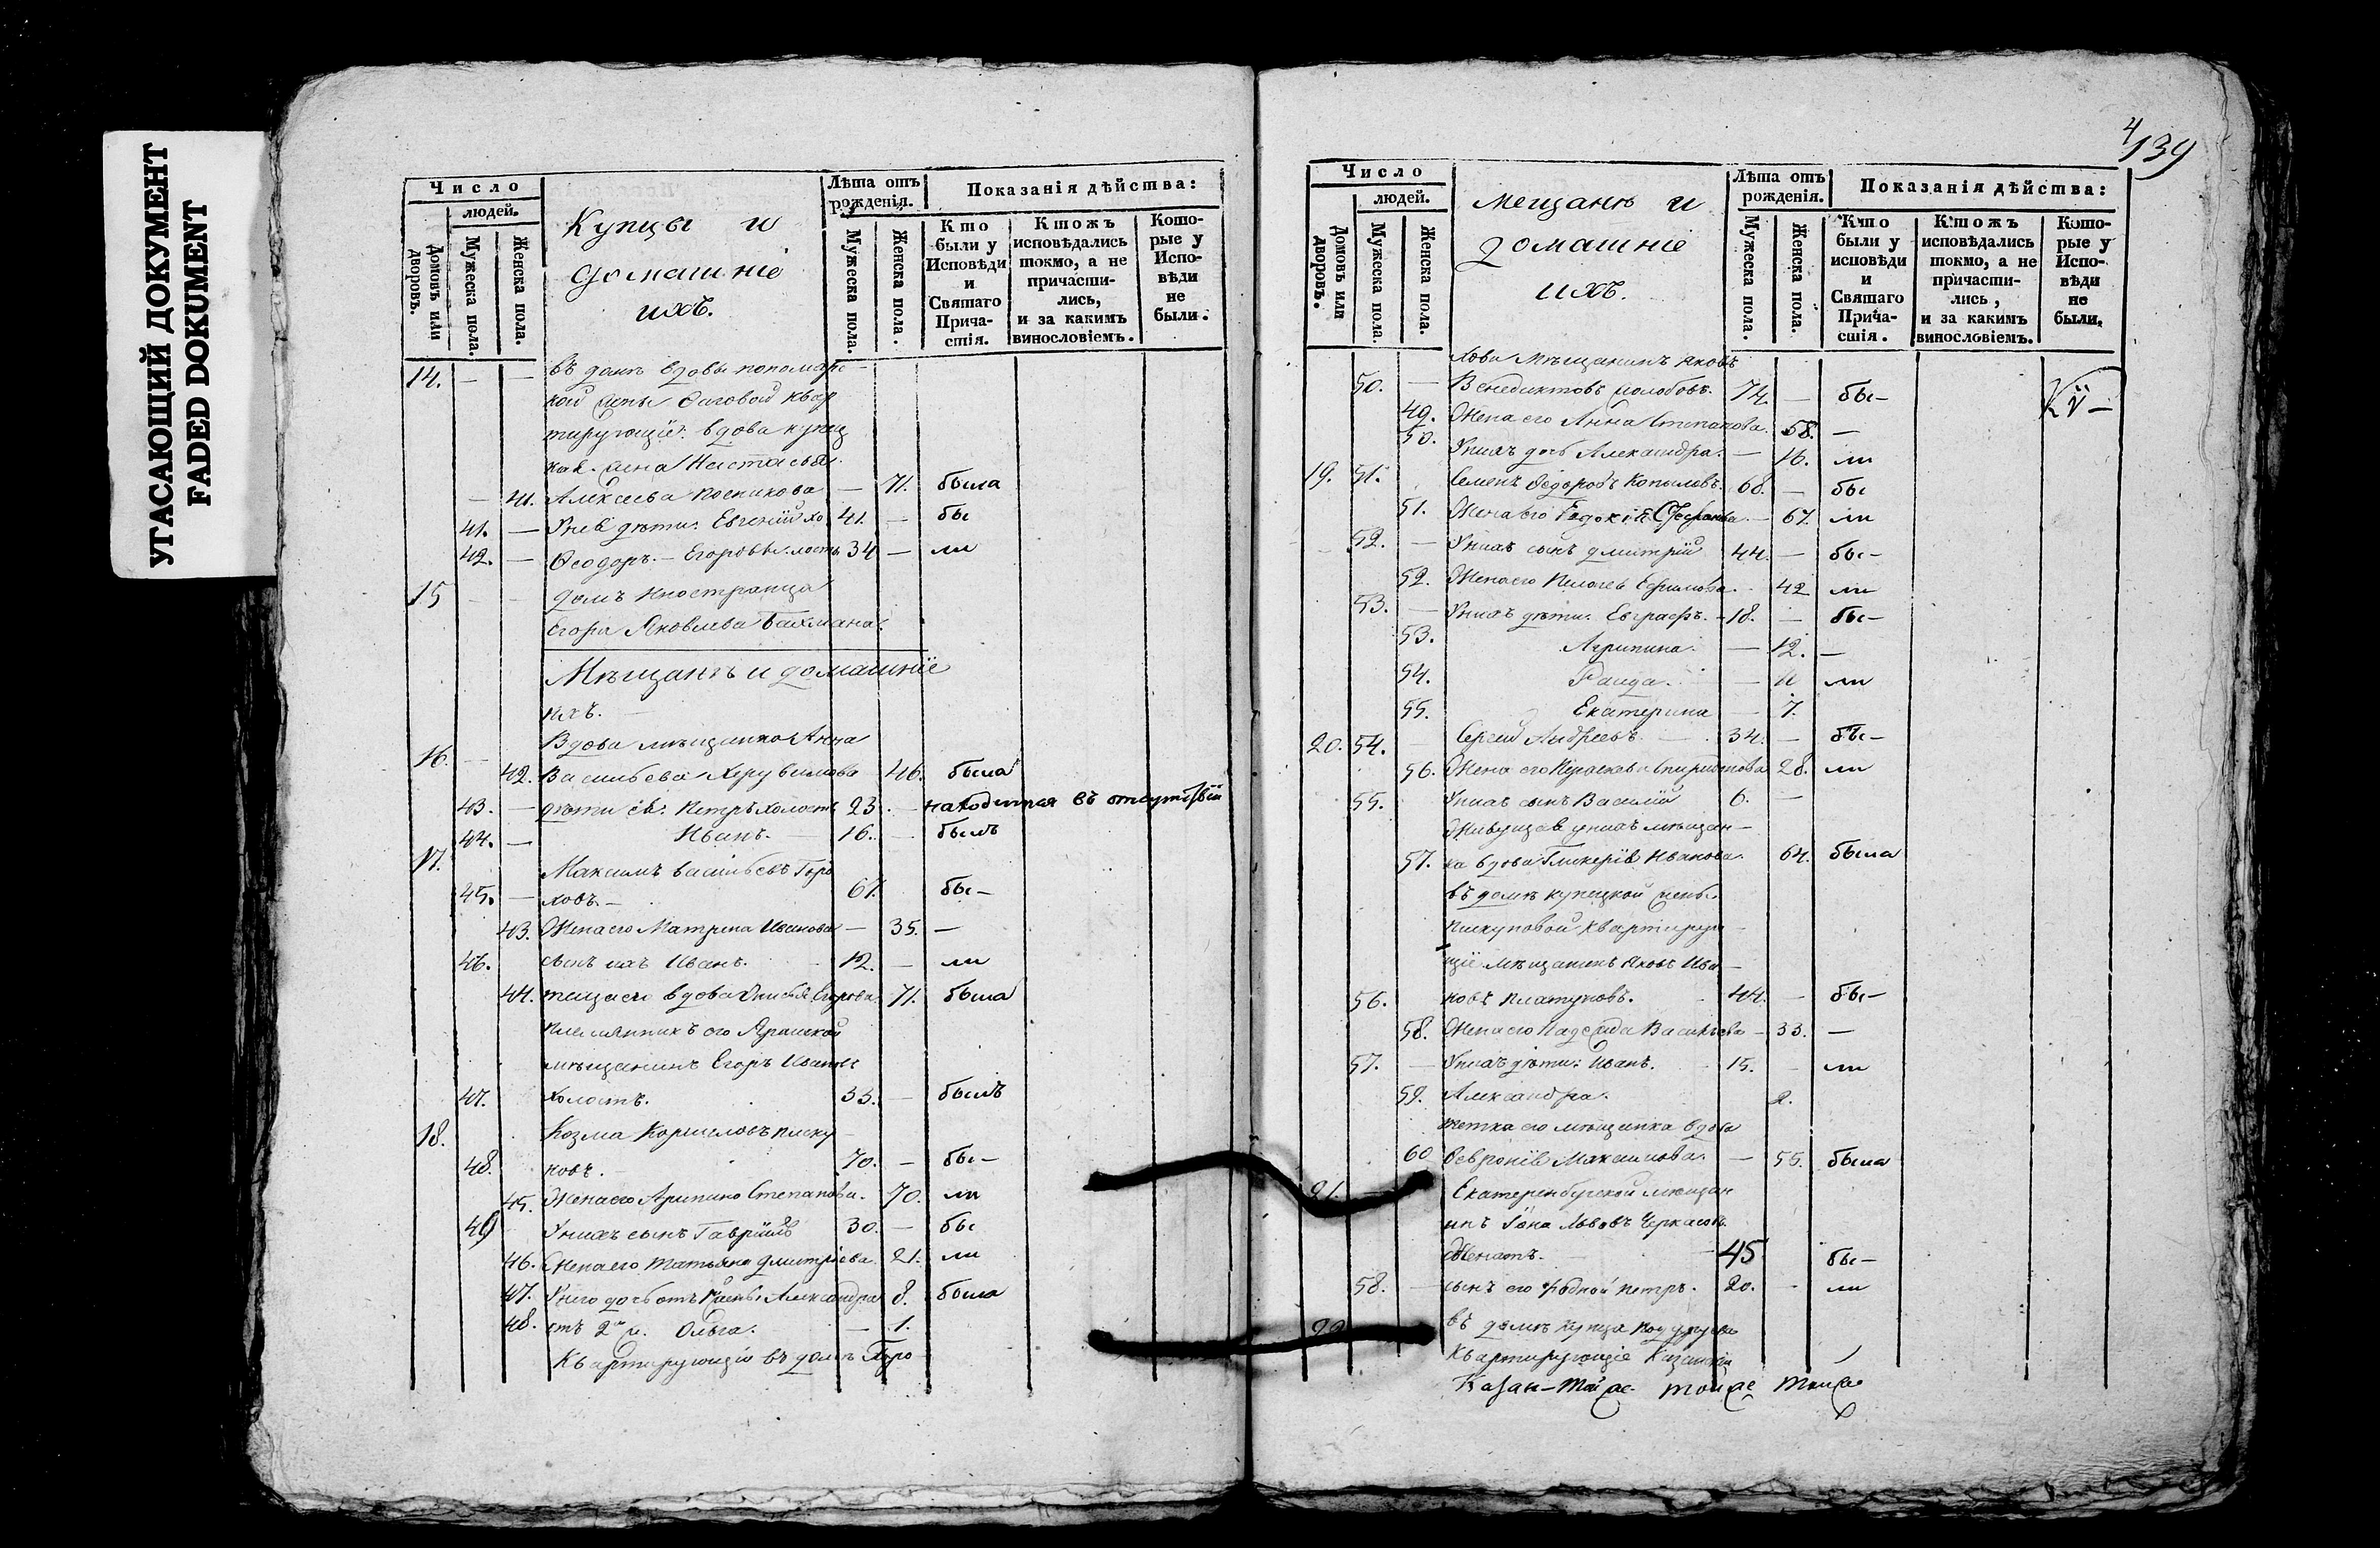 УГАСАЮЩИЙ ДОКУМЕНТ
FADED DOKUMENT
Число
людей.
Домовъ или дворовъ.
Мужеска пола.
Женска пола.
Купцы и
домашніе
ихъ.
Лѣта отъ рожденія.
Мужеска пола.
Женска пола.
Показанія дѣйства:
Кто были у Исповѣди и Святаго Причастія.
Ктожъ исповѣдались токмо, а не причастились, и за какимъ винословіемъ.
Которые у Исповѣди не были.
14. — — въ домѣ вдовы пономарс—
кой жены квар
тирующіе: вдова купец
кая жена Настасья
— 41. Алексеева — 71. была
41. — У нея дѣти: Евгений хо 41. — бы
42. — Феодоръ — Егоровы холостъ 34 — ли
15 — — домъ иностранца
Егора Яковлева Бахмана.
Мѣщанъ и домашніе
ихъ.
16. — Вдова мѣщанка Анна
42. Васильева Херувимова 46. была
43. — дѣти ея: Петръ холостъ 23. — находится въ отсутствіи
44. — Иванъ. — 16. — былъ
17. Максимъ Васильевъ Горо
45. — ховъ — 67. бы—
43. Жена его Матрена Иванова — 35. —
46. сынъ ихъ Иванъ. — 12. — ли
44. теща его вдова Егорова 71. была
племянникъ его Яранской
мѣщанинъ Егоръ Ивановъ
47. холостъ. 33. — былъ
18. Козма Корниловъ Писку
48. новъ. — 70. — бы—
45. Жена его Арипина Степанова. 70. ли
49 У нихъ сынъ Гавріилъ 30. — бы
46. Жена его Татьяна Дмитріева 21. ли
47. У него дочь отъ 1й жены Александра 8. была
48. отъ 2й ж. Ольга. — 1.
Квартирующіе въ домѣ Горо
4
139
Число
людей.
Домовъ или дворовъ.
Мужеска пола.
Женска пола.
Мещанѣ и
домашніе
ихъ.
Лѣта отъ рожденія.
Мужеска пола.
Женска пола.
Показанія дѣйства:
Кто были у исповѣди и Святаго Причастія.
Ктожъ исповѣдались токмо, а не причастились, и за какимъ винословіемъ.
Которые у Исповѣди не были.
хова мѣщанинъ Яковъ
50. — Венедиктовъ Колобовъ. 74. — бы—
49. Жена его Анна Степанова. 58. —
50. У нихъ дочь Александра. — 16. ли
19. 51. Семенъ Федоровъ Копыловъ. 68. — бы
51. Жена его Евдокія — 67. ли
52. — У нихъ сынъ Дмитрій 44. — бы—
52. Жена его Пелагея Ефимова. 42 ли
53. — У нихъ дѣти: Евграфъ. 18. — бы—
53. Агрипина. — 12. —
54. Раида. — 11 ли
55. Екатерина — 7.
20. 54. — Сергей Андреевъ. — 34. — бы—
56. Жена его Параскева Спиридонова 28. ли
55. У нихъ сынъ Василий 6. —
Живущая у нихъ мѣщан—
57. ка вдова Гликерія Иванова. 64. была
въ домѣ купецкой жены
Пискуновой квартирую—
щіе мѣщанинъ Яковъ Ива—
56. новъ Платуновъ. 44. — бы—
58. Жена его Надежда Васильева — 33. —
57. — У нихъ дѣти: Иванъ. 15. — ли
59. Александра. 2.
тетка его мѣщанка вдова
60 Февронія Максимова. — 55. была
21. — Екатеринбургской мѣщан
инъ Іона Львовъ Черкасовъ.
Женатъ. — 45 бы—
58. — сынъ его родной Петръ. 20. — ли
22 въ домѣ купца
Квартирующіе